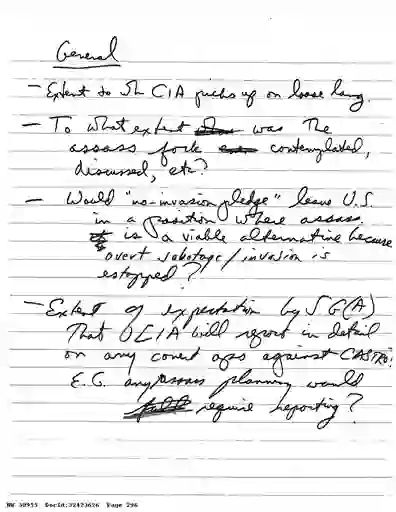 General
- Extent to wh CIA picks up on loose lang.
- To what extent was the
assass of
contemplated,
discussed, etc?
- Would "no-invasion pledge" leave U.S.
in a position where assass.
is a viable alternative because
overt sabotage/invasion is
estopped?
- Extent of expectation by SG(A)
That CIA will report in detail
on any covert ops against CASTRO.
E.G. any assass planning would
require reporting?
NW 50955 DocId:32423626 Page 296